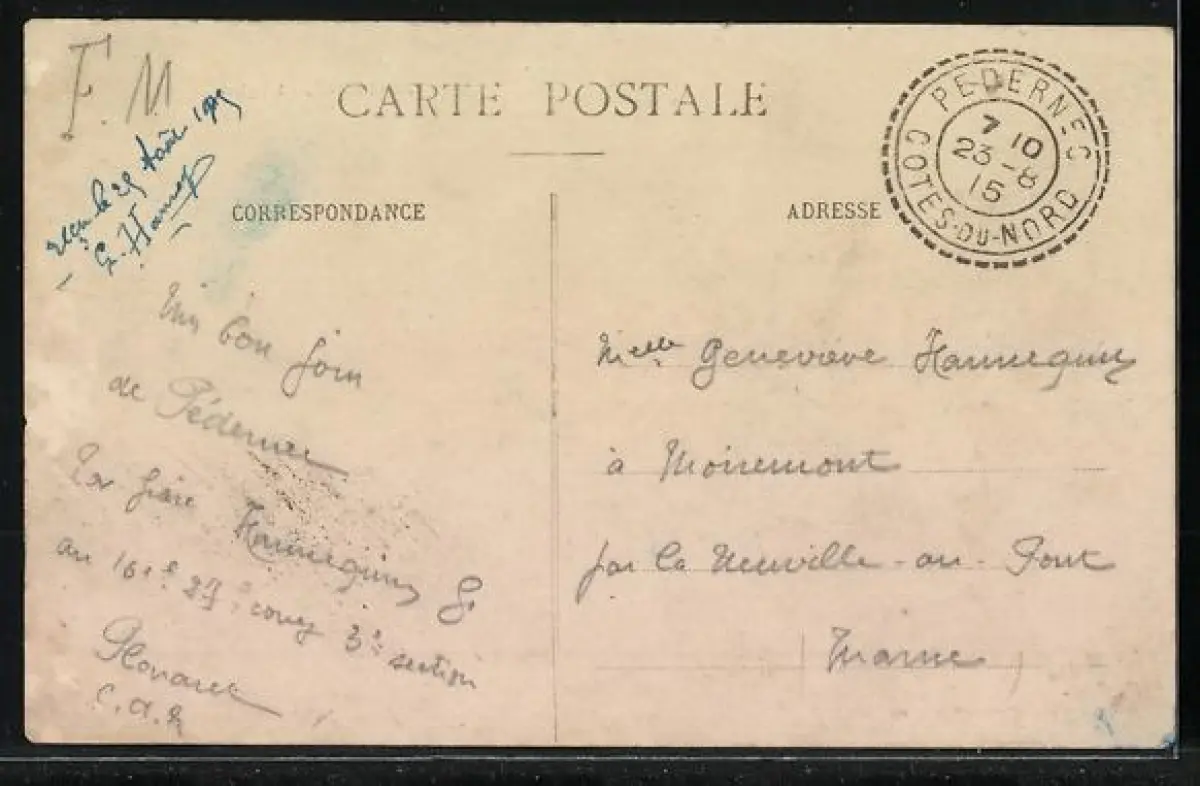 F.M
CARTE POSTALE
PEDERNEC
7 10
23-8
15
COTES-DU-NORD
le 29 Août 1915
G. Hanneq
CORRESPONDANCE
ADRESSE
bon
de Pédernec
Hannequin G
au 161e 29e 3e section
Plouaret
C.d.N
Melle Geneviève Hannequin
à Moiremont
par la Neuville-au-Pont
Marne